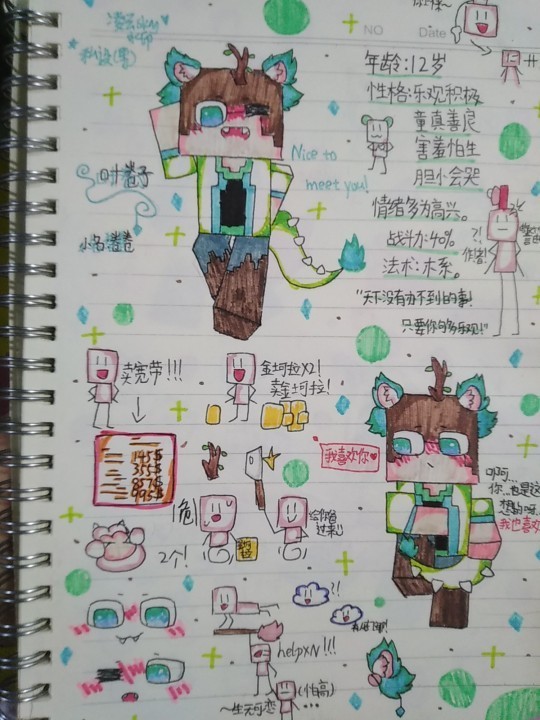 NO
Date
年龄:12岁
性格:乐观积极
童真善良
害羞怕生
胆小会哭
情绪多为高兴。
战斗力:40%
法术:木系。
"天下没有办不到的事!
只要你够乐观!"
Nice to
meet you!
?!
卖宽带!!!
金坷拉X2!
卖金坷拉!
145$
355$
857$
995$
我喜欢你♥
你…也是这
想的呀…
我也喜欢
危!
给你省
过来!
2个!
?!
helpXN!!!
(怕高)
~生无可恋